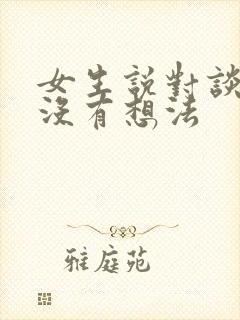 女生説對談
沒有想法
雅庭苑